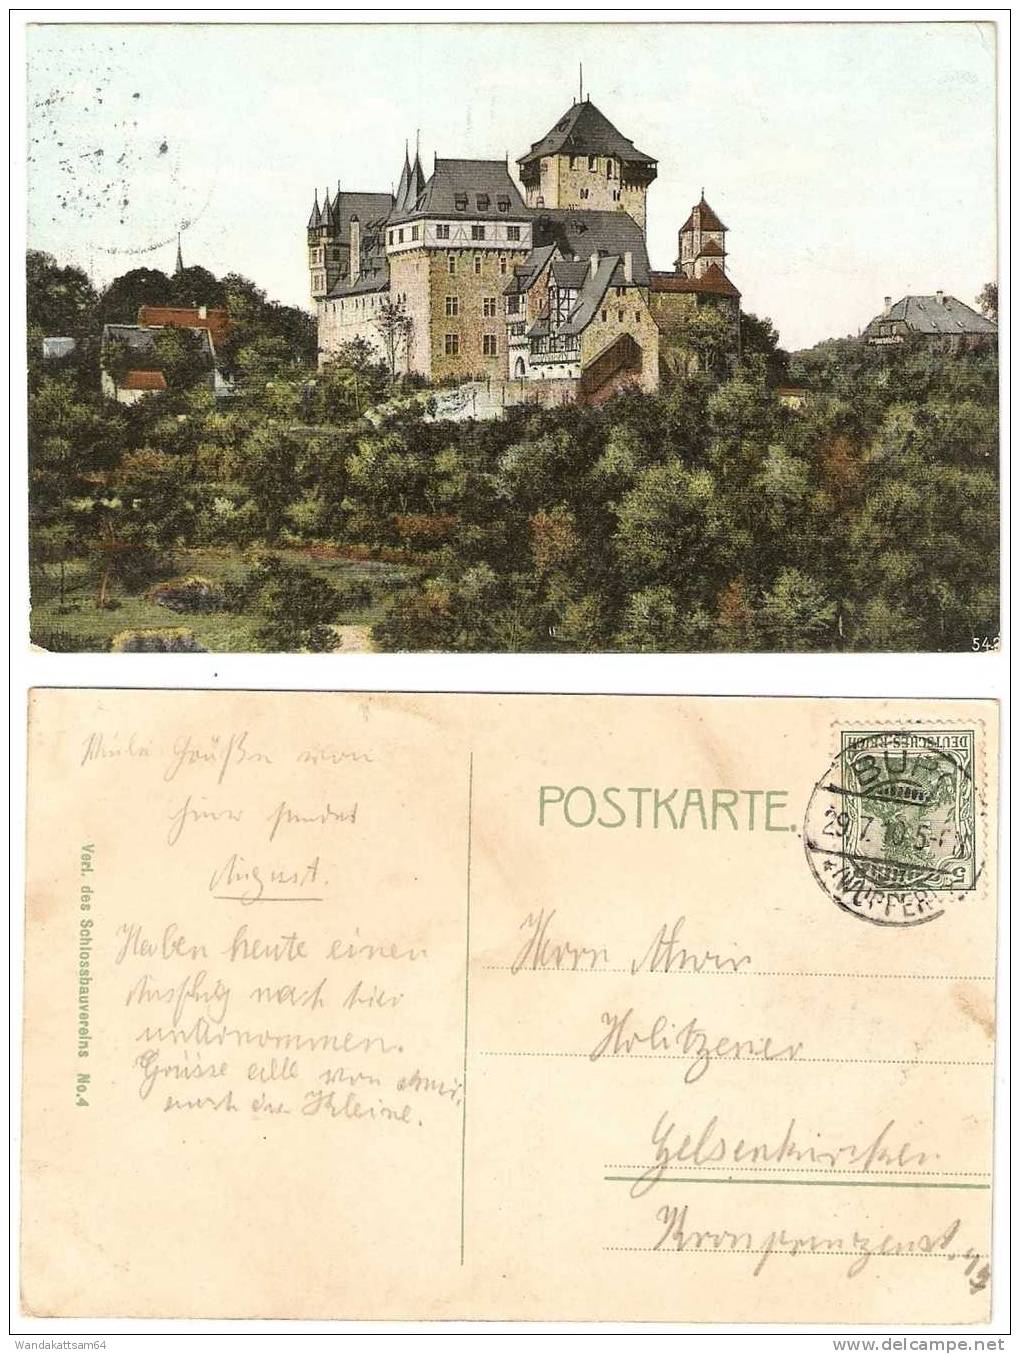 542
Viele Grüße von
hier sendet
August.
Haben heute einen
Ausflug nach hier
unternommen.
Grüsse alle von
auch die Kleine.
Verl. des Schlossbauvereins No.4
POSTKARTE.
DEUTSCHES REICH
5
BURG
29.7.10.5-6
*(WUPPER)
Herrn Alwin
Holitzener
Gelsenkirchen
Kronprinzenst.
Wandakattsam64
www.delcampe.net